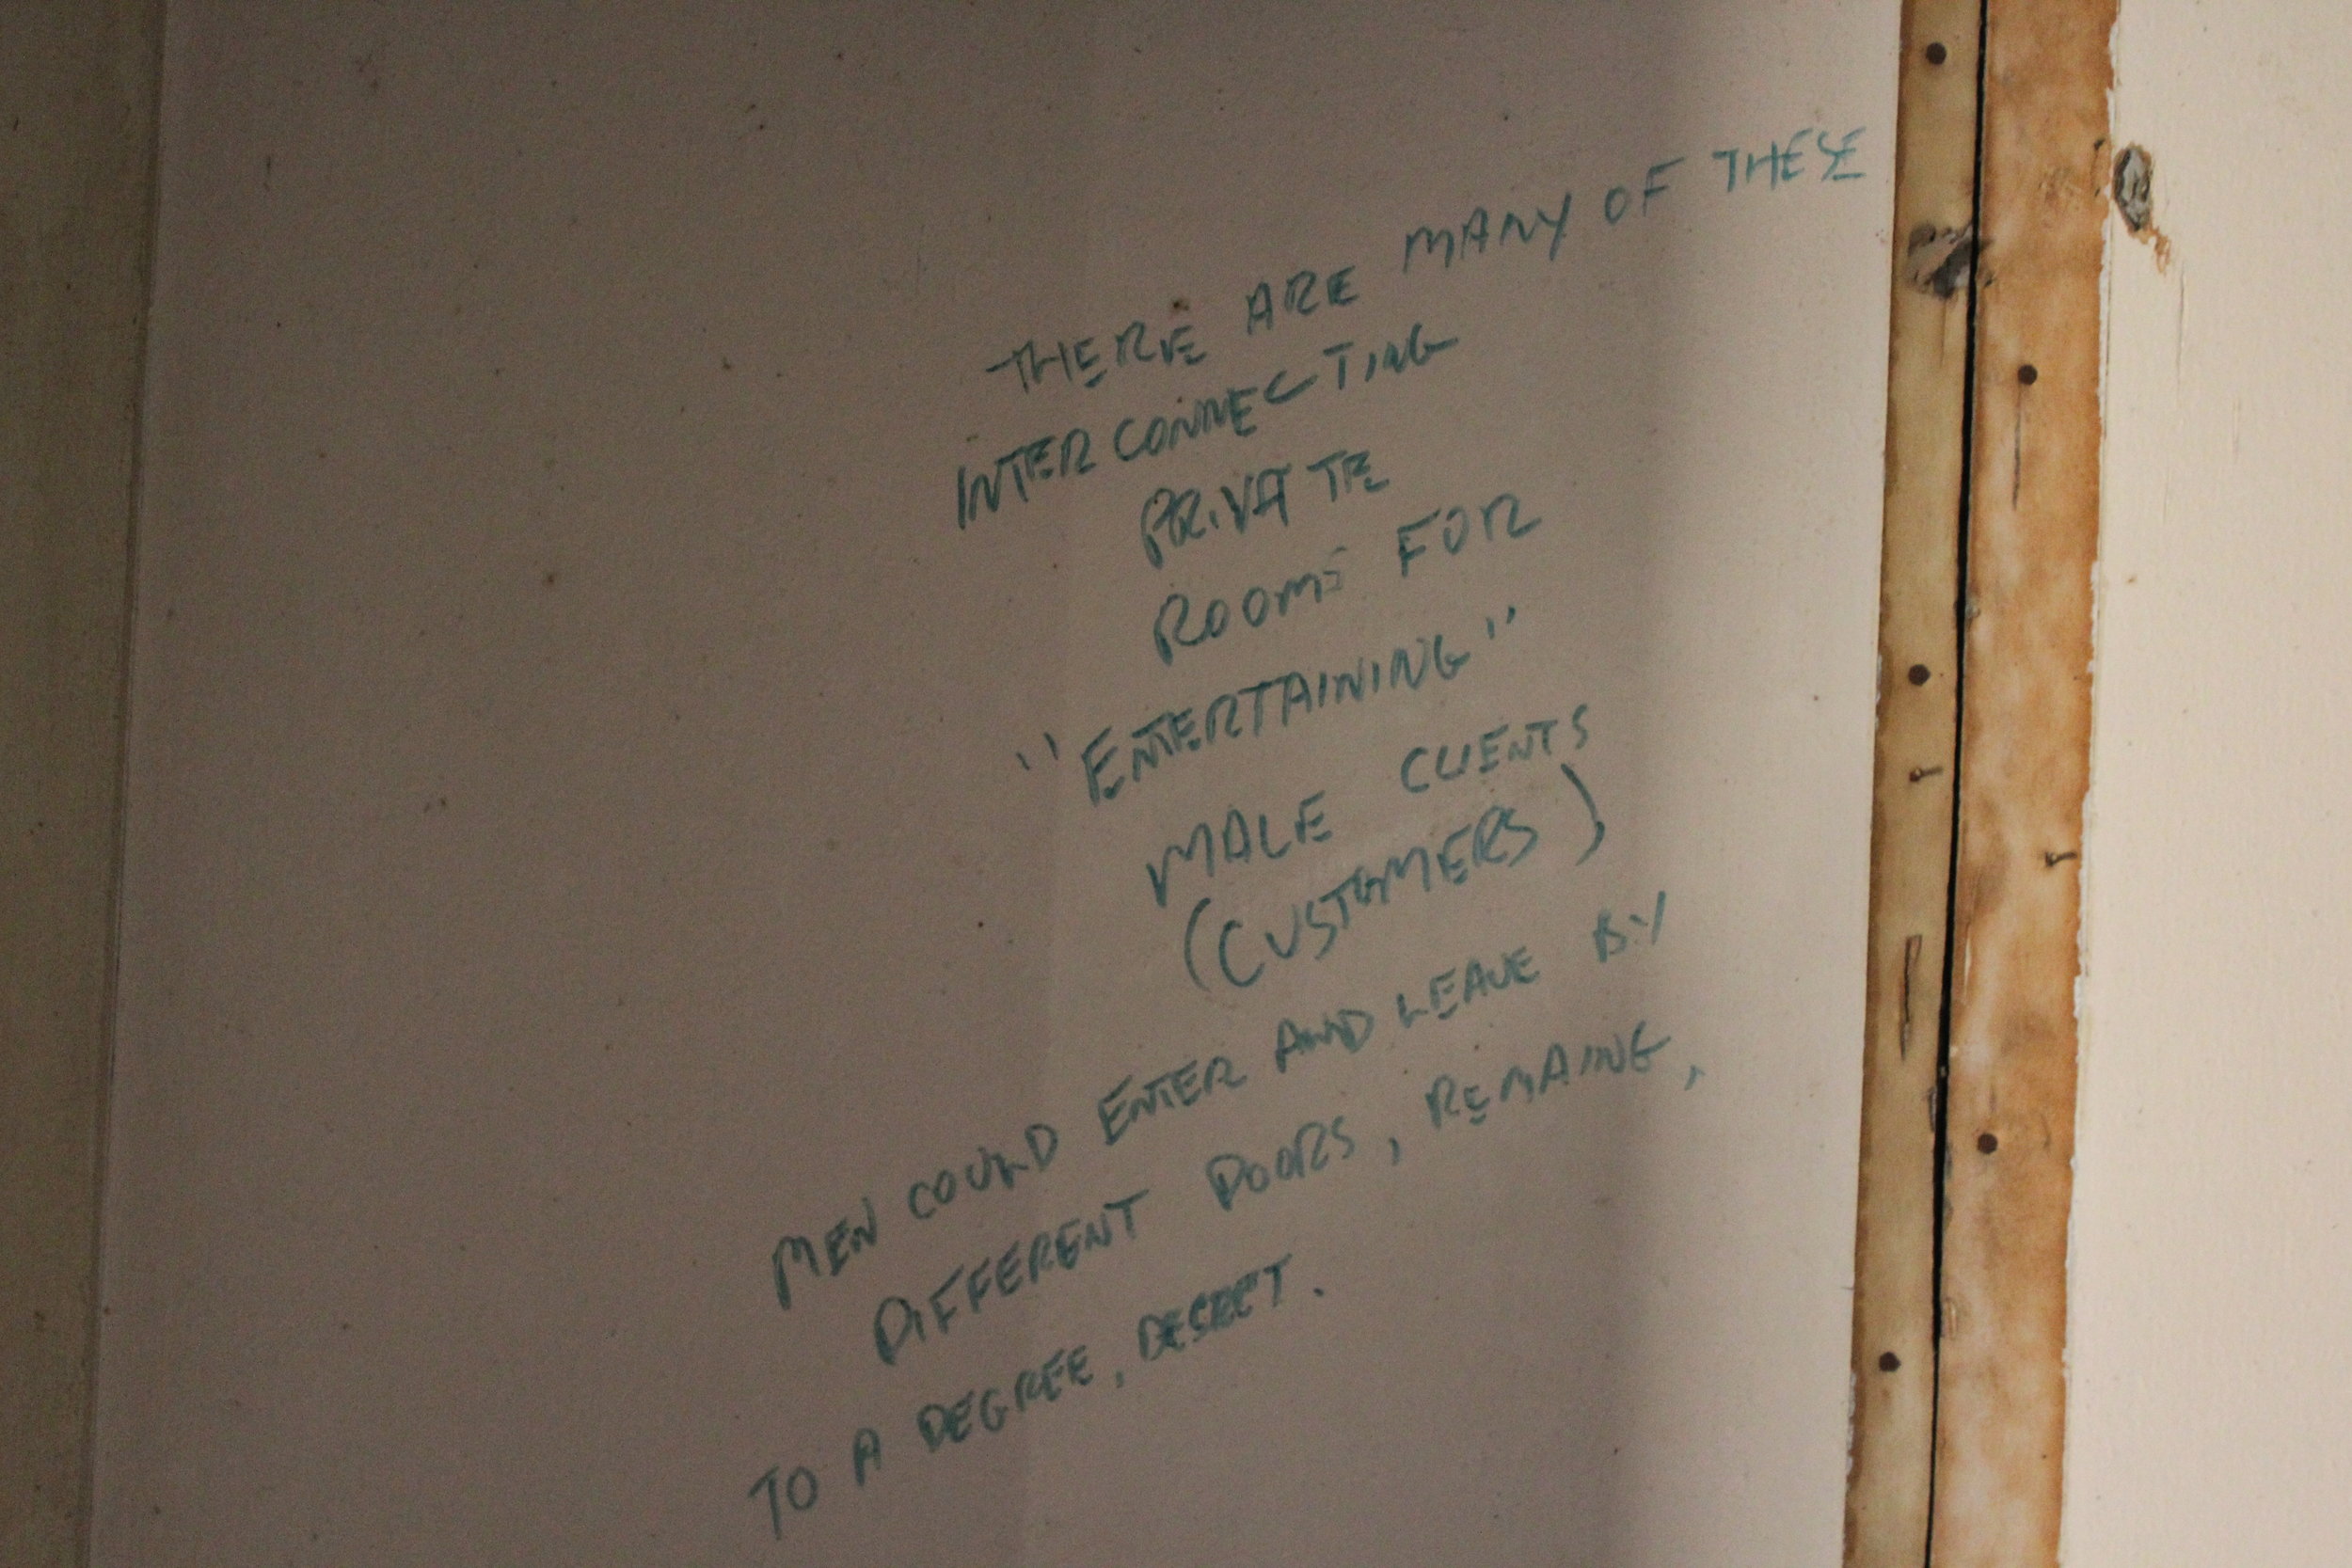 THERE ARE MANY OF THESE
INTERCONNECTING
PRIVATE
ROOMS FOR
"ENTERTAINING"
MALE CLIENTS
(CUSTOMERS)
MEN COULD ENTER AND LEAVE BY
DIFFERENT DOORS, REMAING,
TO A DEGREE, DESRECT.